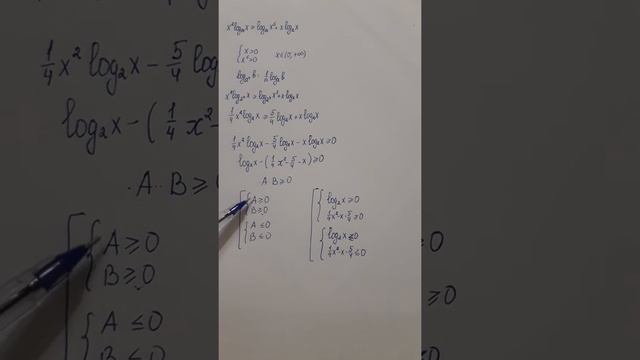 x² log₁₆ x ≥ log₁₆ x⁵ + x log₂ x
{ x>0
x⁵>0 x∈(0; +∞)
logₐₙ b = 1/n logₐ b
x² log₂⁴ x ≥ log₂⁴ x⁵ + x log₂ x
1/4 x² log₂ x ≥ 5/4 log₂ x + x log₂ x
1/4 x² log₂ x − 5/4 log₂ x − x log₂ x ≥ 0
log₂ x · (1/4 x² − 5/4 − x) ≥ 0
A · B ≥ 0
[ { A ≥ 0
B ≥ 0
{ A ≤ 0
B ≤ 0
[ { log₂ x ≥ 0
1/4 x² − x − 5/4 ≥ 0
{ log₂ x ≤ 0
1/4 x² − x − 5/4 ≤ 0